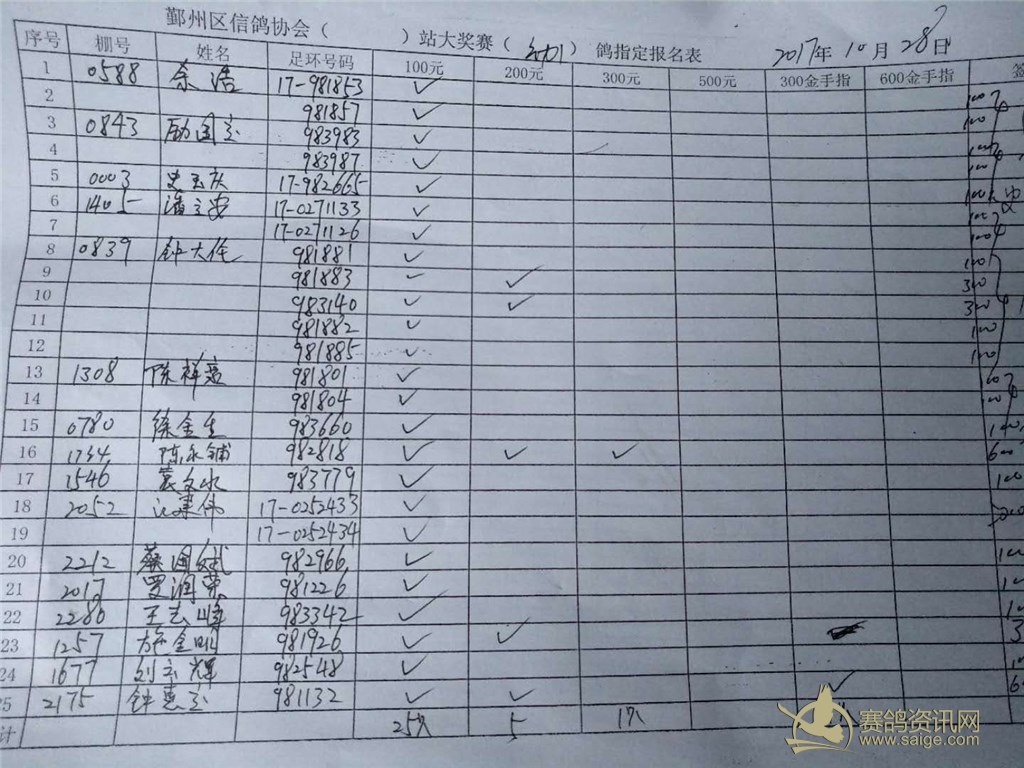 鄞州区信鸽协会( )站大奖赛( ) 鸽指定报名表 2017年10月28日
序号 棚号 姓名 足环号码 100元 200元 300元 500元 300金手指 600金手指
1 0588 余浩 17-981853 ✓
2 981857 ✓
3 0843 励国 983983 ✓
4 983987 ✓
5 0003 史玉庆 17-982665 ✓
6 1405 潘 17-0271133 ✓
7 17-0271126 ✓
8 0839 钟大任 981881 ✓ 100
9 981883 ✓ ✓ 300
10 983140 ✓ ✓ 300
11 981882 ✓ 100
12 981885 ✓ 100
13 1308 陈祥 981801 ✓
14 981804 ✓
15 0780 徐金生 983660 ✓ 100
16 1734 陈永铺 982818 ✓ ✓ ✓ 600
17 1546 袁文水 983779 ✓ 100
18 2052 沈建伟 17-0252433 ✓
19 17-0252434 ✓
20 2212 蔡国斌 982966 ✓
21 2017 罗润荣 981226 ✓
22 2280 王志峰 983342 ✓
23 1257 施金 981926 ✓ ✓
24 1677 刘 辉 982548 ✓
25 2175 钟惠 981132 ✓ ✓ ✓
计 25 5 1
赛鸽资讯网
www.saige.com